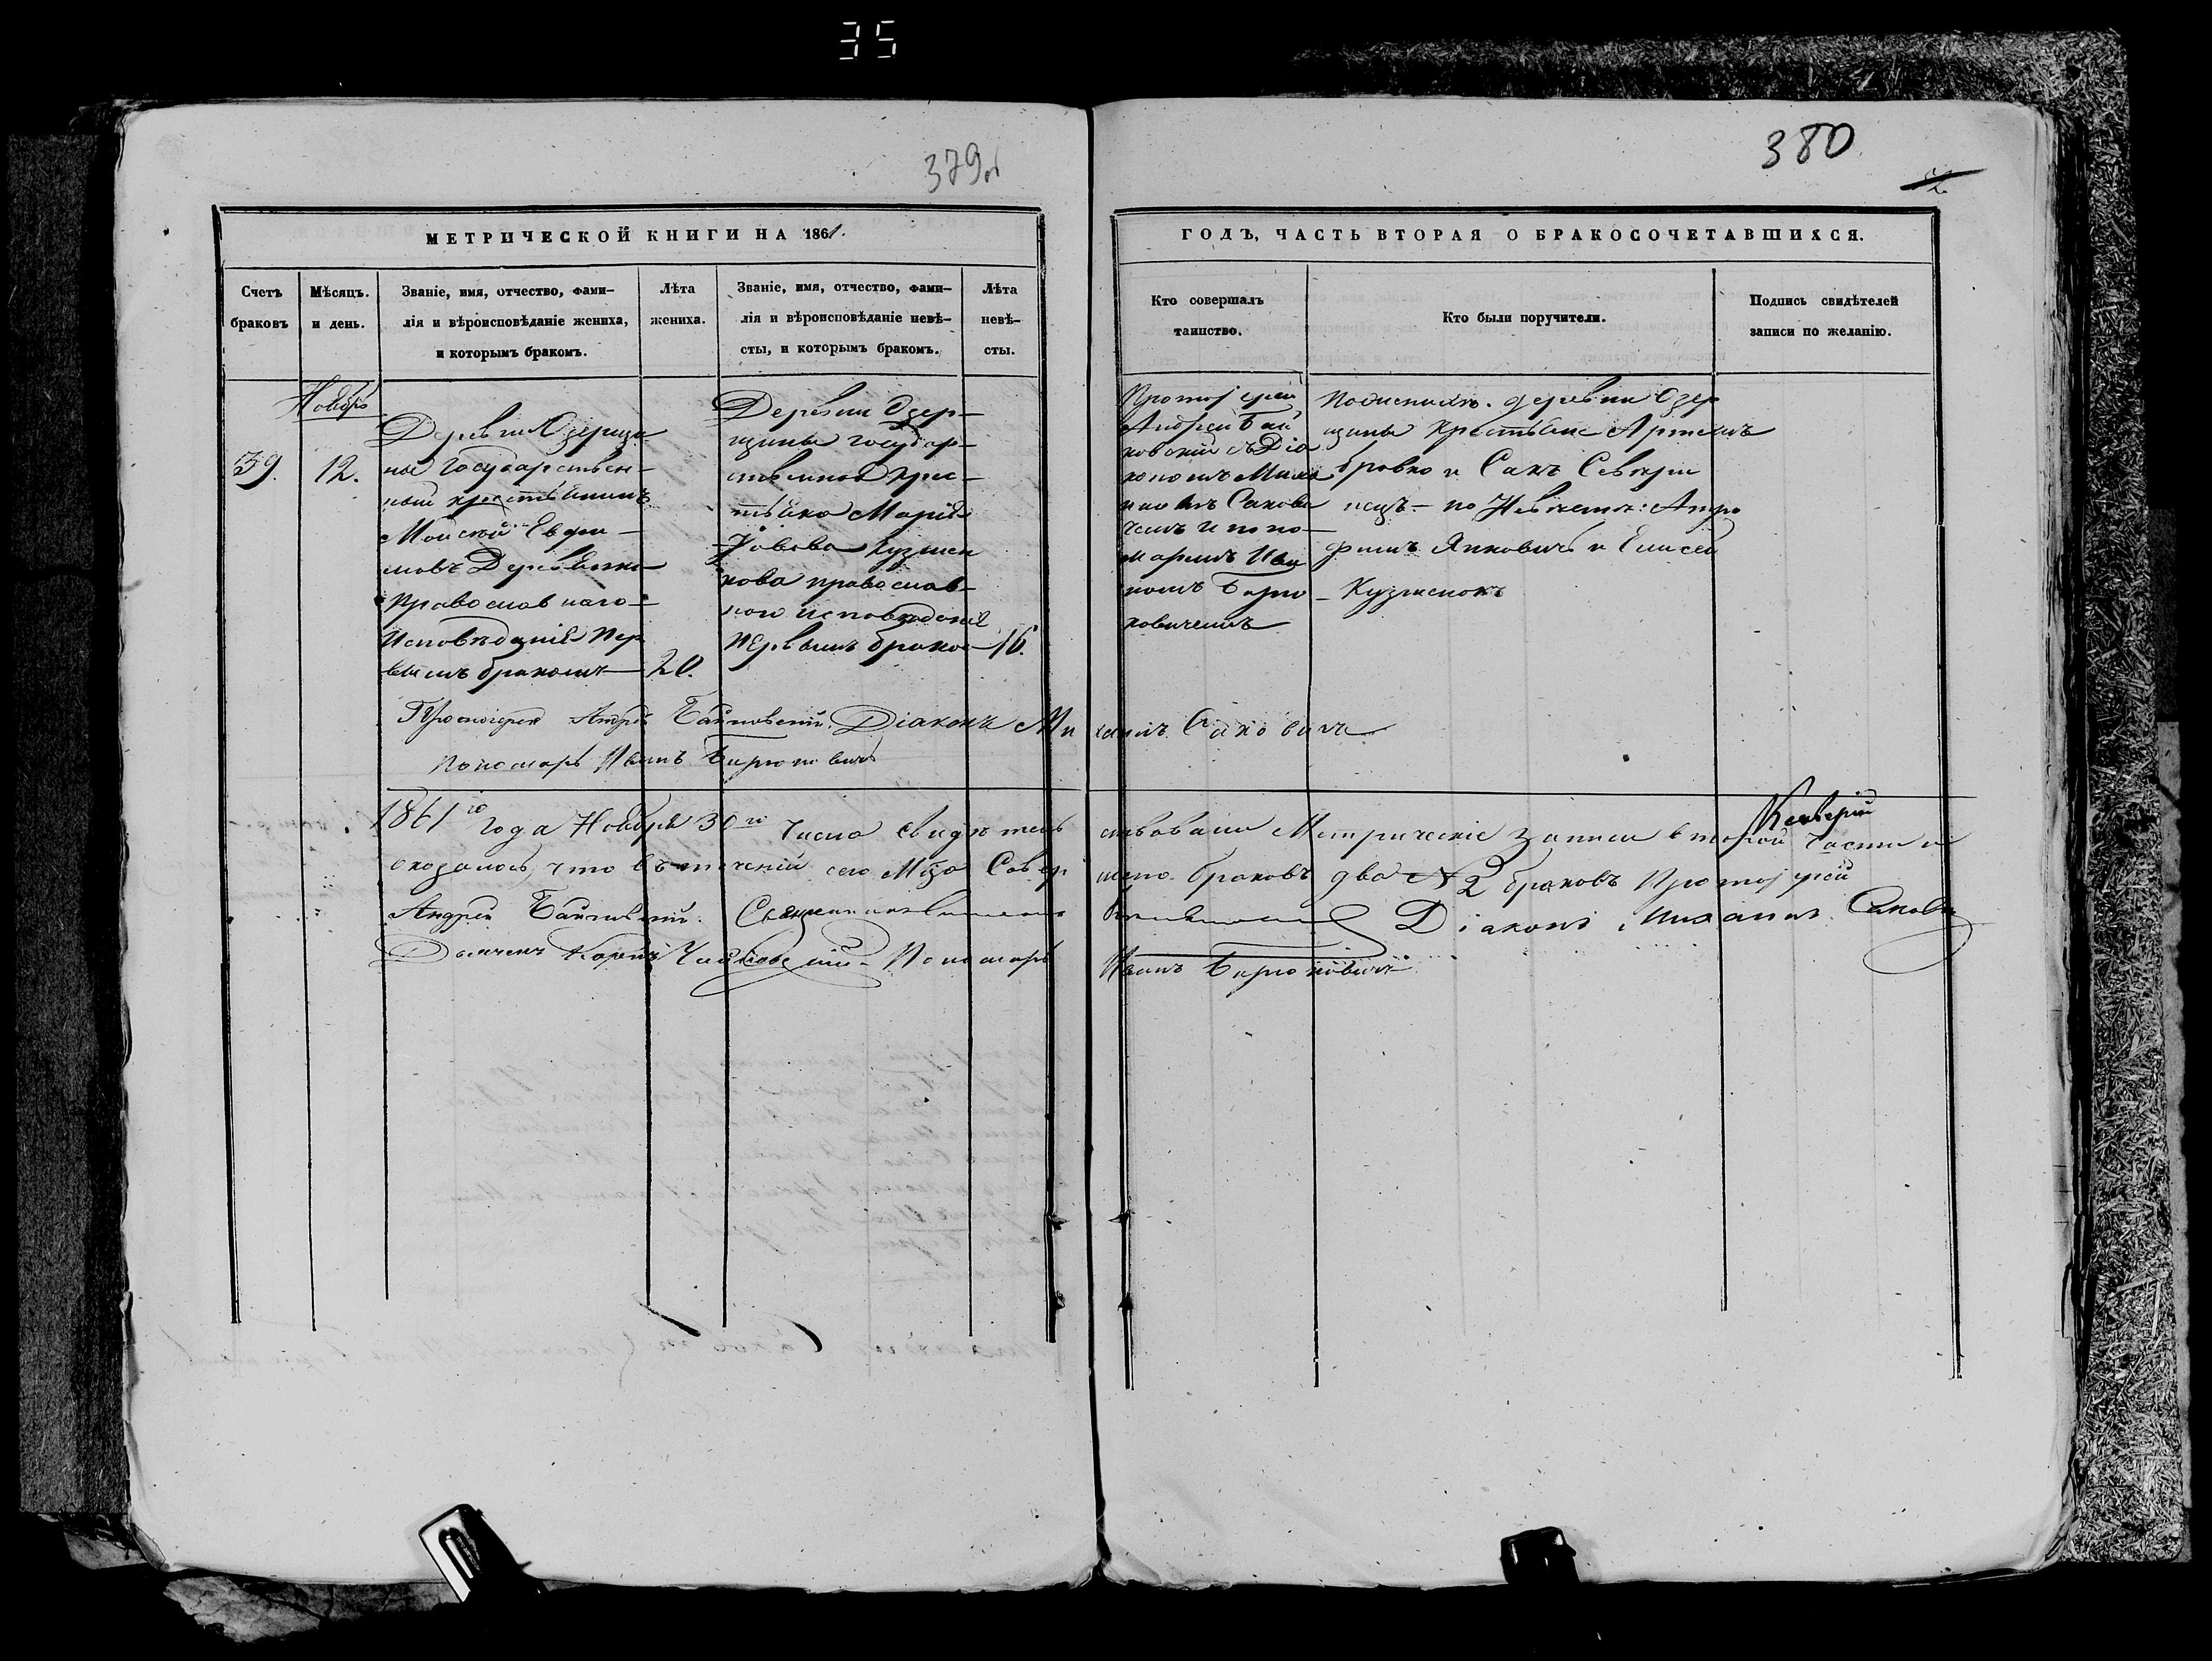 35
379об
380
МЕТРИЧЕСКОЙ КНИГИ НА 1861.
ГОДЪ, ЧАСТЬ ВТОРАЯ О БРАКОСОЧЕТАВШИХСЯ.
Счетъ
браковъ
Мѣсяцъ.
и день.
Званіе, имя, отчество, фами-
лія и вѣроисповѣданіе жениха,
и которымъ бракомъ.
Лѣта
жениха.
Званіе, имя, отчество, фами-
лія и вѣроисповѣданіе невѣ-
сты, и которымъ бракомъ.
Лѣта
невѣ-
сты.
Кто совершалъ
таинство.
Кто были поручители.
Подпись свидѣтелей
записи по желанію.
Ноябрь
39.
12.
Деревни Озерщи-
ны Государствен-
ный крестьянинъ
Мойсей Ефи-
мовъ
Православнаго
Исповѣданія Пер
вымъ бракомъ
20.
Деревни Озер-
щины государ-
ственная крес-
тьянка Марія
Іовова Кузмен
кова православ-
ного исповѣданія
первымъ бракомъ
16.
Протоіерей
Андрей
съ Діа
кономъ Миха
иломъ Сакови
чемъ и поно-
маремъ Ива
номъ Бирю
ковичемъ
По женихѣ. деревни Озер
щины крестьяне Артемъ
и Сакъ
по Невѣстѣ: Атро
фимъ Янковичъ и Елисей
Кузменокъ
Протоіерей Андрей Діаконъ Михаилъ Саковичъ
Пономарь Иванъ Бирюковичъ
1861го года Ноября 30го числа свидѣтельствовали Метрическіе записи второй части и
оказалось, что въ теченіи сего М-ца Совершено браковъ два № 2 браковъ Протоіерей
Андрей Діаконъ Михаилъ Сакович
Пономарь Иванъ Бирюковичъ